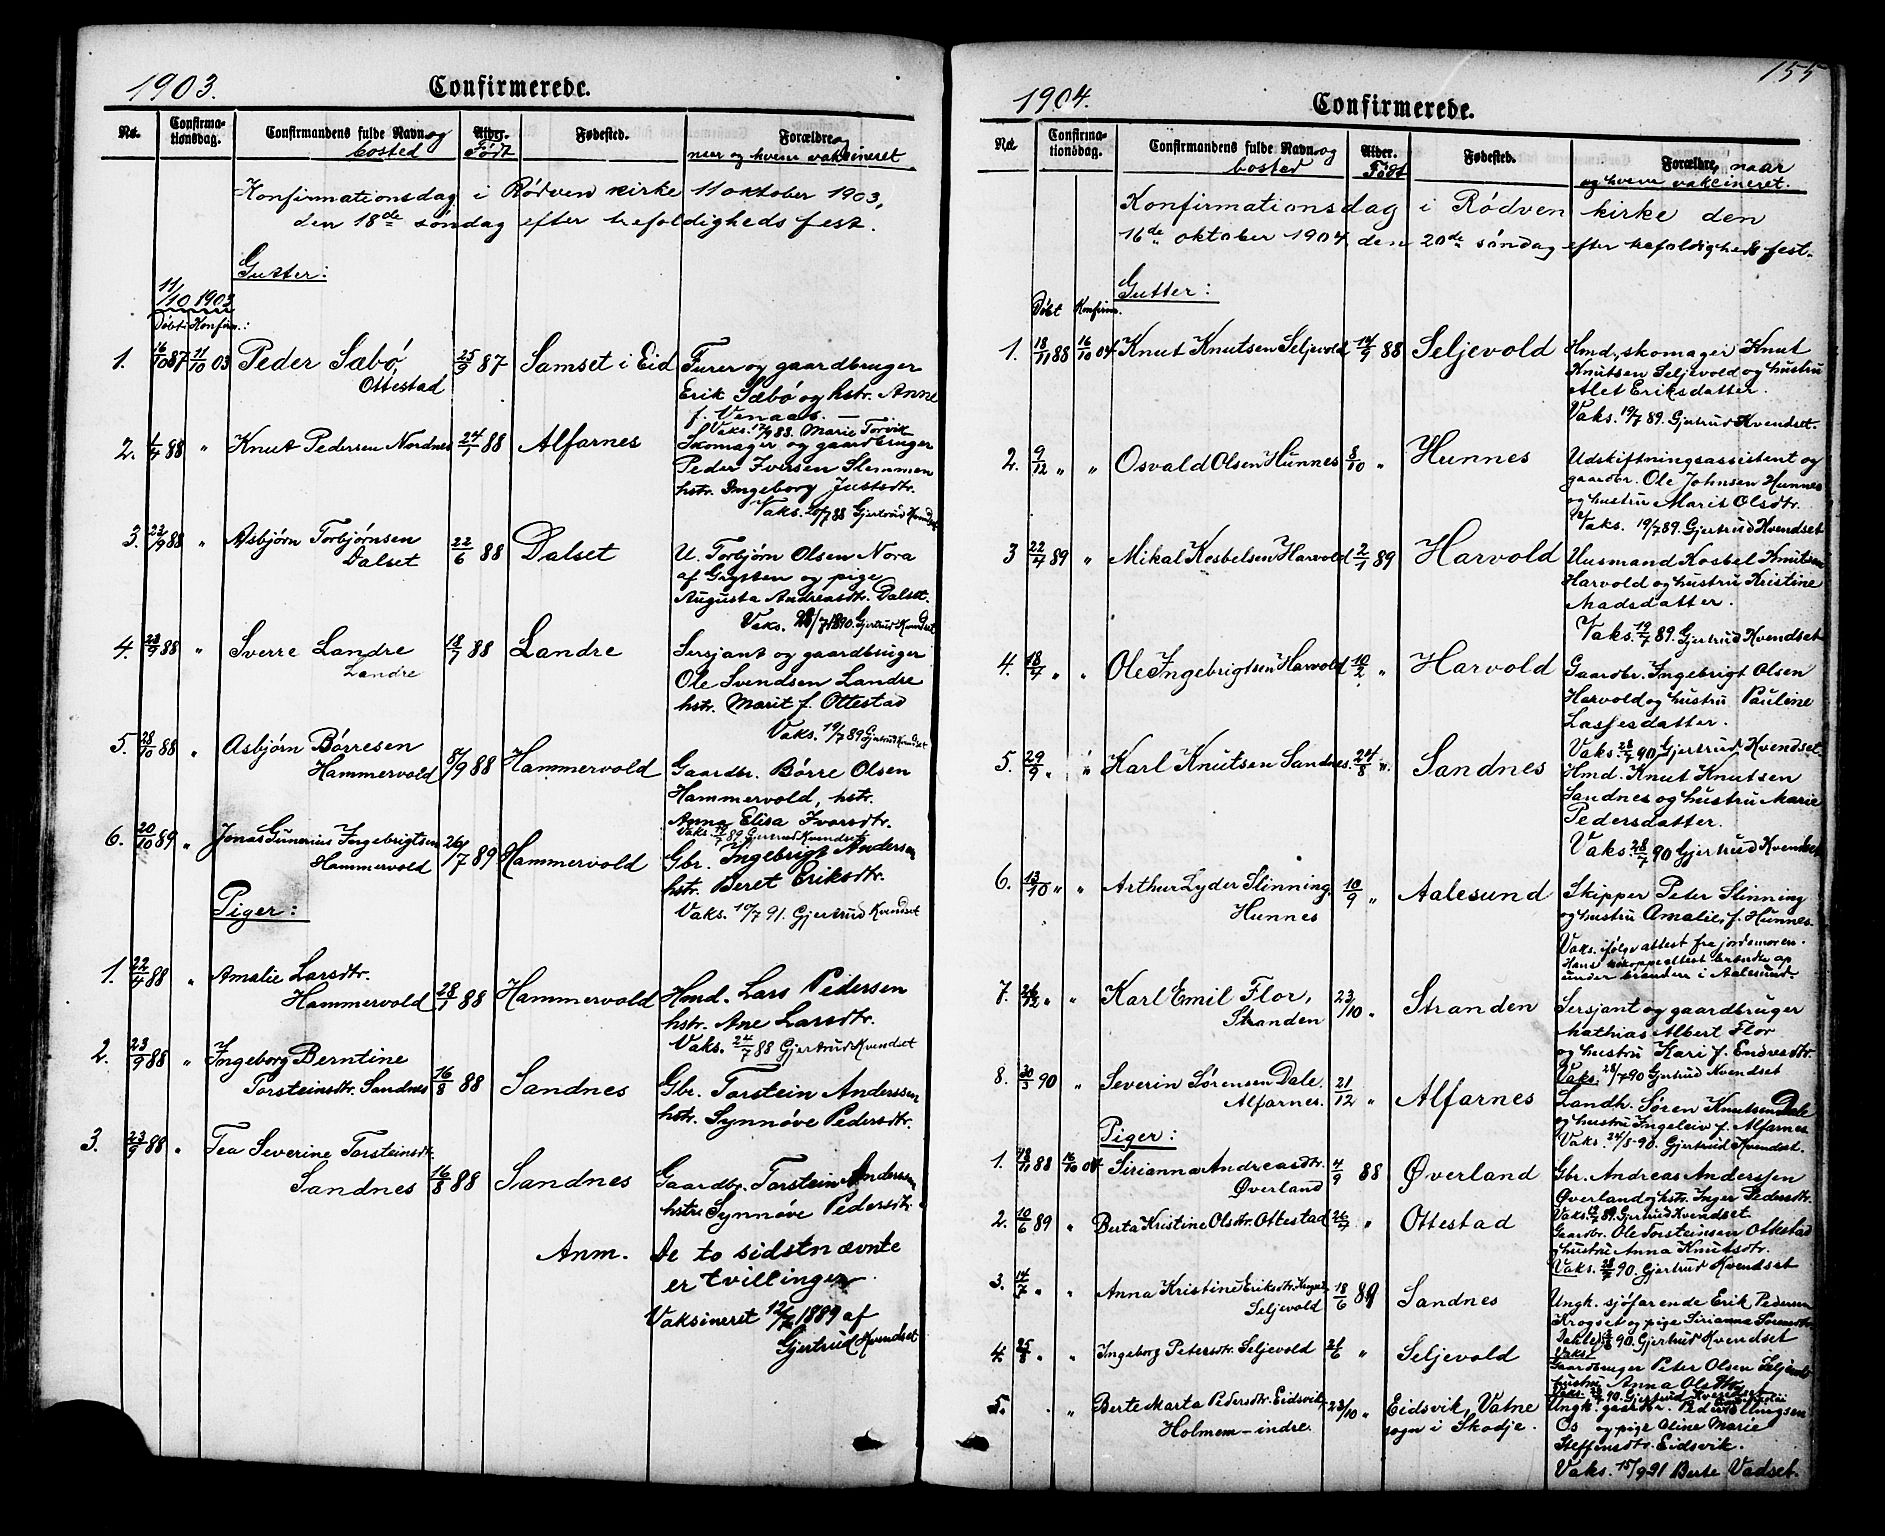 1903.
Confirmerede.
No. Confirmationsdag. Confirmandens fulde Navn og bosted Alder. Født Fødested. Forældre, og naar og hvem vaksineret
Konfirmationsdag i Rødven kirke 11 oktober 1903,
den 18de søndag efter trefoldigheds fest.
Gutter:
11/10 1903
Døbt: Konfirm.:
1. 16/10 87 11/10 03 Peder Sæbø, 25/9 87 Samset i Eid Furer og gaardbruger
Ottestad Erik Sæbø og hstr. Anne
f. Venaas. —
Vaks. 17/9 88. Marie Torvik
2. 1/4 88 " Knut Pedersen Nordnes 24/1 88 Alfarnes Skomager og gaardbruger
Peder Iversen Slemmen
hstr. Ingeborg Justsdtr.
Vaks. 20/7 88 Gjertrud Kvendset
3. 23/9 88 " Asbjørn Torbjørnsen 22/6 88 Dalset U. Torbjørn Olsen Nora
Dalset af Grytten og pige
Augusta Andreasdtr. Dalset.
Vaks. 28/7 1890. Gjertrud Kvendset
4. 23/9 88 " Sverre Landre 18/7 88 Landre Sersjant og gaardbruger
Landre Ole Svendsen Landre
hstr. Marit f. Ottestad
Vaks. 19/7 89 Gjertrud Kvendset
5. 28/10 88 " Asbjørn Børresen 8/9 88 Hammervold Gaardbr. Børre Olsen
Hammervold Hammervold, hstr.
Anna Elisa Ivarsdtr.
Vaks. 89 Gjertrud Kvendset
6. 20/10 89 " Jonas Gunerius Ingebrigtsen 26/7 89 Hammervold Gbr. Ingebrigt Andersen
Hammervold hstr. Beret Eriksdtr.
Vaks. 10/7 91. Gjertrud Kvendset
Piger:
1. 22/4 88 " Amalie Larsdtr. 28/1 88 Hammervold Hmd. Lars Pedersen
Hammervold hstr. Ane Larsdtr.
Vaks. 24/7 88 Gjertrud Kvendset
2. 23/9 88 " Ingeborg Berntine 16/8 88 Sandnes Gbr. Torstein Anderssen
Torsteinsdtr. Sandnes hstr. Synnøve Pedersdtr.
3. 23/9 88 " Tea Severine Torsteinsdtr. 16/8 88 Sandnes Gaardbr. Torstein Anderssen
Sandnes hstr. Synnøve Pedersdtr.
Anm. De to sidstnævnte
er tvillinger.
Vaksineret 12/7 1889 af
Gjertrud Kvendset
155
1904.
Confirmerede.
No. Confirmationsdag. Confirmandens fulde Navn og bosted Alder. Født Fødested. Forældre, naar og hvem vakcineret.
Konfirmationsdag i Rødven kirke den
16de oktober 1904 den 20de søndag efter trefoldigheds fest.
Gutter:
Døbt Konfirm.
1. 18/11 88 16/10 04 Knut Knutsen Seljevold 14/9 88 Seljevold Hmd, skomager Knut
Knutsen Seljevold og hustru
Alet Eriksdatter.
Vaks. 19/7 89. Gjertrud Kvendset.
2. 9/12 " " Osvald Olsen Hunnes 8/10 " Hunnes Udskiftningsassistent og
gaardbr. Ole Johnsen Hunnes
og hustru Marit Olsdtr.
Vaks. 19/7 89. Gjertrud Kvendset
3 22/4 89 " Mikal Kosbelsen Harvold 2/1 89 Harvold Husmand Kosbel Knutsen
Harvold og hustru Kristine
Madsdatter.
Vaks. 19/7 89. Gjertrud Kvendset
4. 18/4 " " Ole Ingebrigtsen Harvold 10/2 " Harvold Gaardbr. Ingebrigt Olsen
Harvold og hustru Pauline
Lassesdatter.
Vaks. 28/7 90 Gjertrud Kvendset.
5. 29/9 " " Karl Knutsen Sandnes. 24/8 " Sandnes Hmd. Knut Knutsen
Sandnes og hustru Marie
Pedersdatter.
Vaks. 28/7 90 Gjertrud Kvendset
6. 13/10 " " Arthur Lyder Slinning, 10/9 " Aalesund Skipper Peter Slinning
Hunnes og hustru Amalie f. Hunnes.
Vaks. ifølge attest fra jordemoren.
Hans koppeattest brændte op
under branden i Aalesund.
7. 26/12 " " Karl Emil Flor, 23/10 " Stranden Sersjant og gaardbruger
Stranden Mathias Albert Flor
og hustru Kari f. Endresdtr.
Vaks. 28/7 90 Gjertrud Kvendset
8. 30/3 90 " Severin Sørensen Dale. 21/12 " Alfarnes Landh. Søren Knutsen Dale
Alfarnes. og hustru Ingeleiv f. Alfarnes
Vaks. 24/8-90. Gjertrud Kvendset.
Piger:
1. 18/11 88 16/10 04 Sirianna Andreasdtr. 4/9 88 Øverland Gbr. Andreas Anderssen
Øverland Øverland og hstr. Inger Pedersdtr.
Vaks. 89. Gjertrud Kvendset
2. 10/6 89 " Berta Kristine Olsdtr. Ottestad " Ottestad Gaardbr. Ole Torsteinsen Ottestad
og hustru Anna Knutsdtr.
Vaks. 28/7 90. Gjertrud Kvendset
3. 14/7 " " Anna Kristine Eriksdtr. 18/6 89 Sandnes Ungk. sjøfarende Erik Pedersen
Seljevold Krogset og pige Sirianna Sørensdtr.
Dahle. Vaks. 90. Gjertrud Kvendset
4. 25/8 " " Ingeborg Petersdtr. Seljevold " Seljevold Gaardbruger Peter Olsen Seljevold
hustru Anna Olsdtr.
Vaks. 90. Gjertrud Kvendset
5. " Berte Marta Pedersdtr. Eidsvik, 23/10 " Eidsvik, Vatne Ungk. gaardbr. Peder
Holmem-indre. sogn i Skodje. Os og pige Oline Marie
Steffensdtr. Eidsvik.
Vaks. 15/9 91 Berte Vadset.